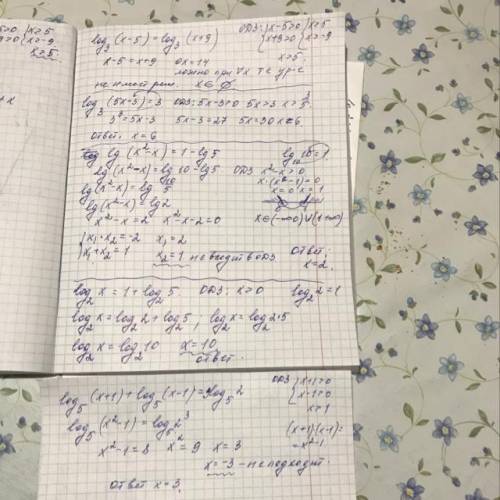 log₃(x-5) = log₃(x+9) ОДЗ: {x-5>0 {x≥5
{x+9>0 {x>-9
x-5 = x+9 0x=14 x>5
ложно при ∀x т.к. ур-е
не имеет реш. x∈∅
log₃(5x-3)=3 ОДЗ: 5x-3>0 5x>3
3³=5x-3 5x-3=27 5x=30 x=6
Ответ. x=6
lg(x²-x) = 1-lg5 lg 10=1
lg(x²-x) = lg10-lg5 ОДЗ x²-x>0
lg(x²-x) = lg 10/5
x=0 x=1
lg(x²-x) = lg2
x²-x=2 x²-x-2=0 x∈(-∞;0)∪(1;+∞)
{x₁·x₂=-2 x₁=2
{x₁+x₂=1 x₂=1 не входит в ОДЗ Ответ: x=2.
log₂x = 1+log₂5 ОДЗ: x>0 log₂2=1
log₂x = log₂2+log₂5; log₂x = log₂2·5
log₂x = log₂10 x=10
ответ.
log₅(x+1)+log₅(x-1)=3log₅2 ОДЗ {x+1>0
{x-1>0
x>1
log₅(x²-1) = log₅2³ (x+1)(x-1)=
=x²-1
x²-1=8 x²=9 x=3
x=-3 - не подходит.
Ответ x=3.